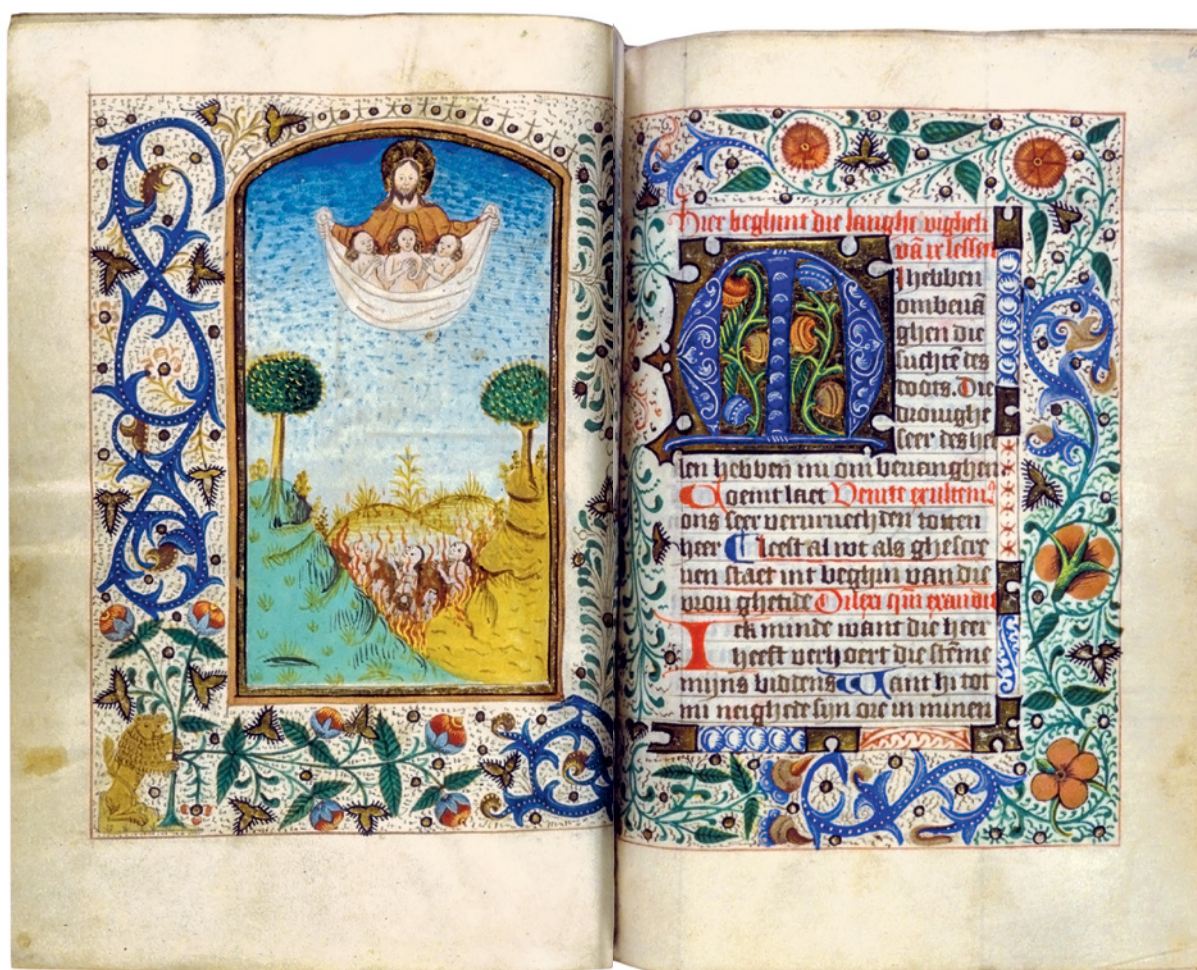 Hier beghint die langhe vigheli
vā ix lessen
Mi hebben
ombeuā
ghen die
suchtē des
doots. Die
drouighe
seer des hel
len hebben mi om beuanghen
Comt laet Venite exultem9
ons seer veruruech den toten
heer Leest al wt als ghescre
uen staet int beghin van die
vrou ghetide Dilexi qm̄ exaudit
Ick minde want die heer
heeft verhoert die stēme
mijns biddens Want hi tot
mi neighede syn ore in minen